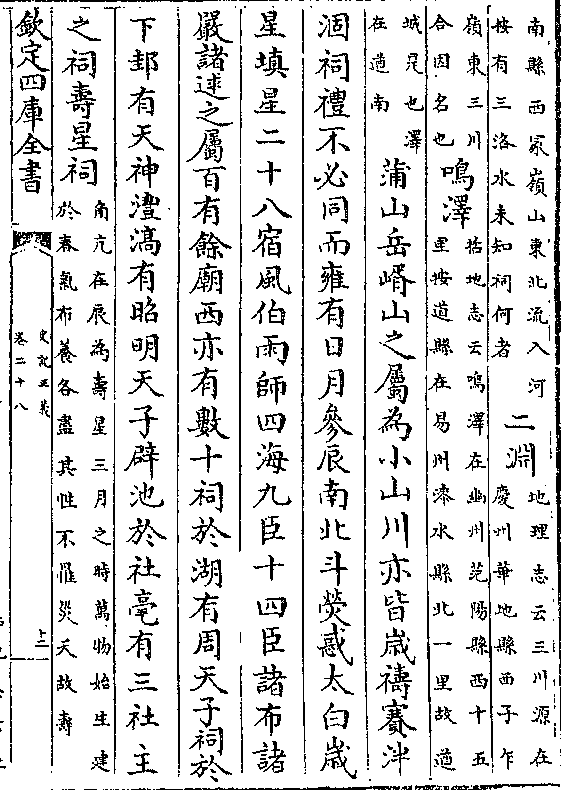 南縣西冢嶺山東北流入河
按有三洛水未知祠何者
二淵
地理志云三川源在
慶州華地縣西子午
嶺東三川
合因名也
鳴澤
括地志云鳴澤在幽州范陽縣西十五
里按遒縣在易州淶水縣北一里故遒
城是也澤
在遒南
蒲山岳㟙山之屬為小山川亦皆歲禱賽泮
涸祠禮不必同而雍有日月參辰南北斗熒惑太白歲
星填星二十八宿風伯雨師四海九臣十四臣諸布諸
嚴諸逑之屬百有餘廟西亦有數十祠於湖有周天子祠於
下邽有天神灃滈有昭明天子辟池於社亳有三社主
之祠壽星祠
角亢在辰為壽星三月之時萬物始生建
於春氣布養各盡其性不罹災夭故壽
欽定四庫全書
史記正義
卷二十八